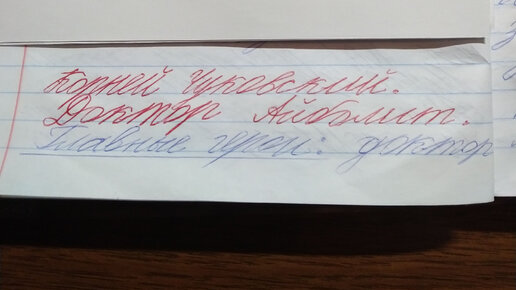 Корней Чуковский.
Доктор Айболит.
Главные герои: доктор